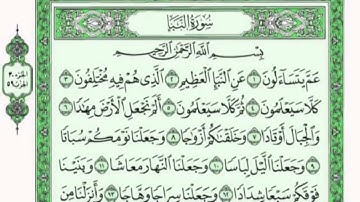 سُورَةُ النَّبَإِ
بِسْمِ اللَّهِ الرَّحْمَٰنِ الرَّحِيمِ
عَمَّ يَتَسَاءَلُونَ ١ عَنِ النَّبَإِ الْعَظِيمِ ٢ الَّذِي هُمْ فِيهِ مُخْتَلِفُونَ ٣
كَلَّا سَيَعْلَمُونَ ٤ ثُمَّ كَلَّا سَيَعْلَمُونَ ٥ أَلَمْ نَجْعَلِ الْأَرْضَ مِهَادًا
٦ وَالْجِبَالَ أَوْتَادًا ٧ وَخَلَقْنَاكُمْ أَزْوَاجًا ٨ وَجَعَلْنَا نَوْمَكُمْ سُبَاتًا
٩ وَجَعَلْنَا اللَّيْلَ لِبَاسًا ١٠ وَجَعَلْنَا النَّهَارَ مَعَاشًا ١١ وَبَنَيْنَا
فَوْقَكُمْ سَبْعًا شِدَادًا ١٢ وَجَعَلْنَا سِرَاجًا وَهَّاجًا ١٣ وَأَنزَلْنَا مِنَ
الجزء ٣٠
الحزب ٥٩